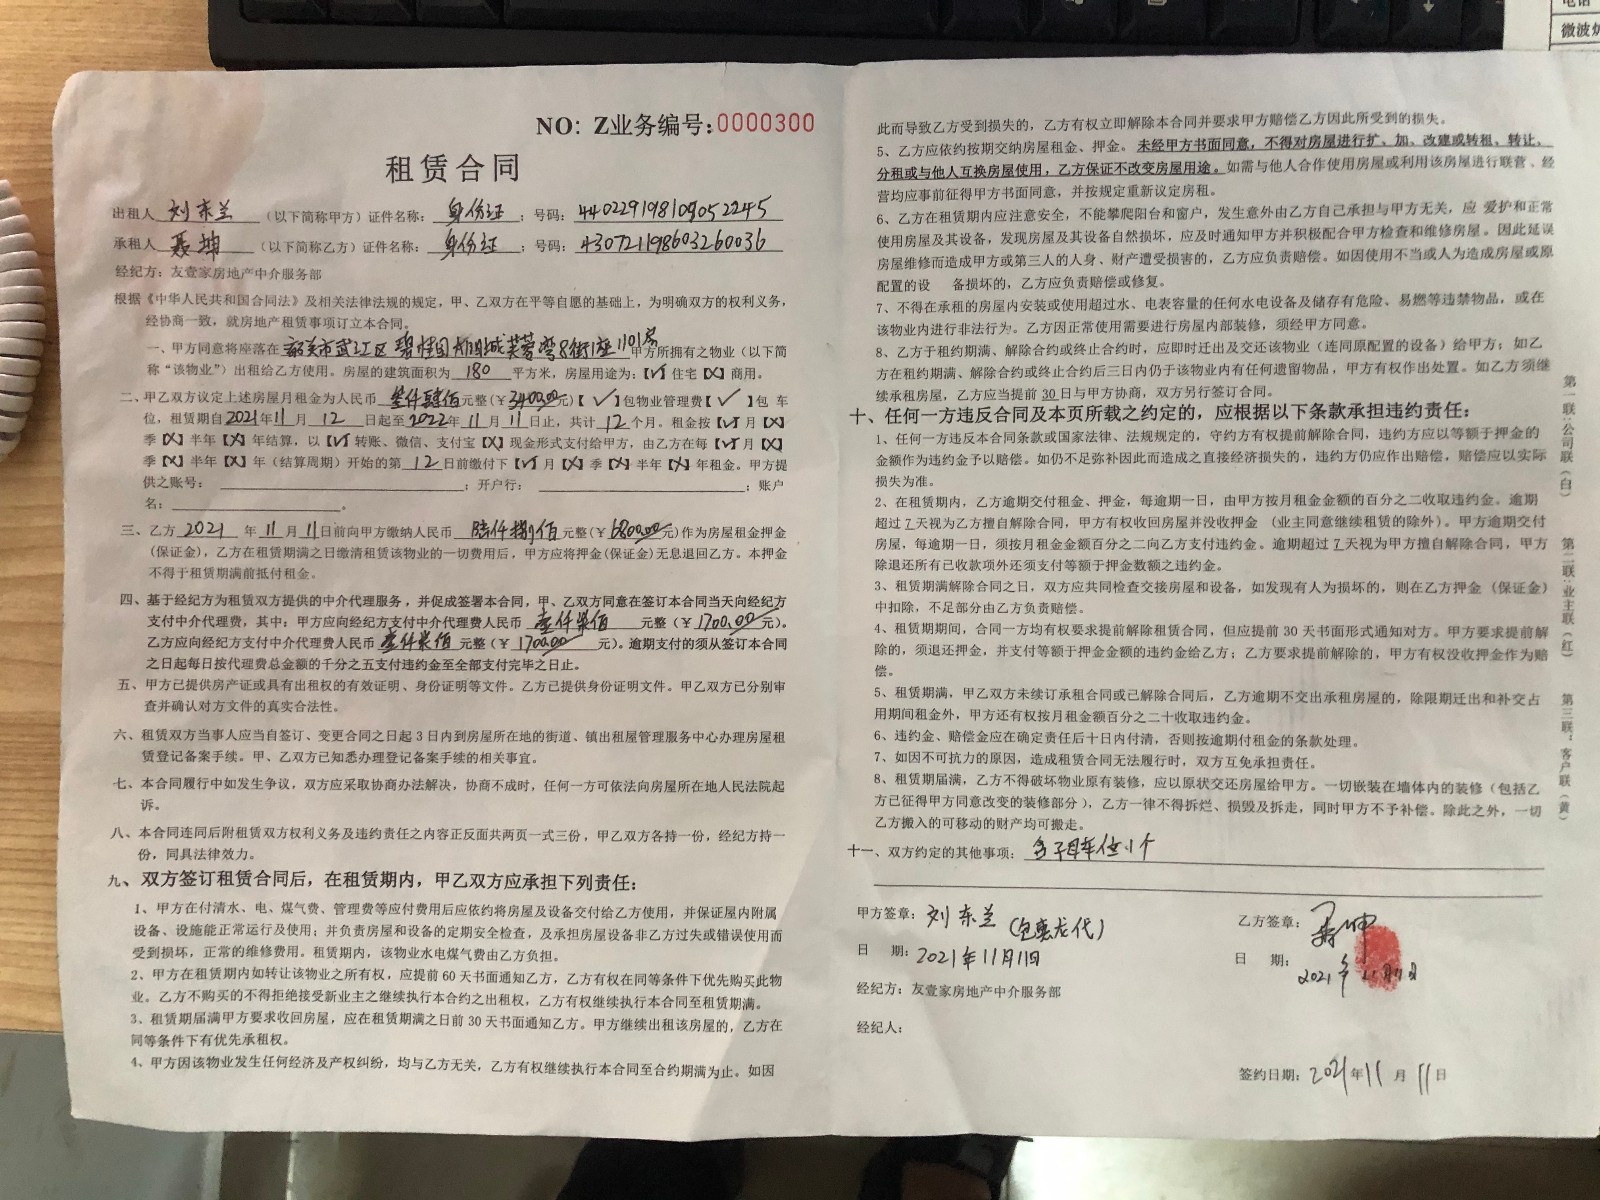 电话
微波炉
NO: Z业务编号:0000300
租赁合同
出租人 刘东兰 (以下简称甲方)证件名称: 身份证 ;号码: 440229198109052245
承租人 聂坤 (以下简称乙方)证件名称: 身份证 ;号码: 430721198603260036
经纪方:友壹家房地产中介服务部
根据《中华人民共和国合同法》及相关法律法规的规定,甲、乙双方在平等自愿的基础上,为明确双方的权利义务,
经协商一致,就房地产租赁事项订立本合同。
一、甲方同意将座落在 韶关市武江区碧桂园太阳城芙蓉湾8街1座1101房 甲方所拥有之物业(以下简
称“该物业”)出租给乙方使用。房屋的建筑面积为 180 平方米,房屋用途为:【✓】住宅【X】商用。
二、甲乙双方议定上述房屋月租金为人民币 叁仟肆佰 元整(¥3400.00元)【✓】包物业管理费【✓】包 车
位,租赁期自2021年11月 12 日起至2022年 11 月 11 日止,共计 12 个月。租金按【✓】月【X】
季【X】半年【X】年结算,以【✓】转账、微信、支付宝【X】现金形式支付给甲方,由乙方在每【✓】月【X】
季【X】半年【X】年(结算周期)开始的第 12 日前缴付下【✓】月【X】季【X】半年【X】年租金。甲方提
供之账号: ;开户行: ;账户
名: 。
三、乙方 2021 年 11 月 11 日前向甲方缴纳人民币 陆仟捌佰 元整(¥6800.00元)作为房屋租金押金
(保证金),乙方在租赁期满之日缴清租赁该物业的一切费用后,甲方应将押金(保证金)无息退回乙方。本押金
不得于租赁期满前抵付租金。
四、基于经纪方为租赁双方提供的中介代理服务,并促成签署本合同,甲、乙双方同意在签订本合同当天向经纪方
支付中介代理费,其中:甲方应向经纪方支付中介代理费人民币 壹仟柒佰 元整(¥1700.00元)。
乙方应向经纪方支付中介代理费人民币 壹仟柒佰 元整(¥1700.00 元)。逾期支付的须从签订本合同
之日起每日按代理费总金额的千分之五支付违约金至全部支付完毕之日止。
五、甲方已提供房产证或具有出租权的有效证明、身份证明等文件。乙方已提供身份证明文件。甲乙双方已分别审
查并确认对方文件的真实合法性。
六、租赁双方当事人应当自签订、变更合同之日起3日内到房屋所在地的街道、镇出租屋管理服务中心办理房屋租
赁登记备案手续。甲、乙双方已知悉办理登记备案手续的相关事宜。
七、本合同履行中如发生争议,双方应采取协商办法解决,协商不成时,任何一方可依法向房屋所在地人民法院起
诉。
八、本合同连同后附租赁双方权利义务及违约责任之内容正反面共两页一式三份,甲乙双方各持一份,经纪方持一
份,同具法律效力。
九、双方签订租赁合同后,在租赁期内,甲乙双方应承担下列责任:
1、甲方在付清水、电、煤气费、管理费等应付费用后应依约将房屋及设备交付给乙方使用,并保证屋内附属
设备、设施能正常运行及使用;并负责房屋和设备的定期安全检查,及承担房屋设备非乙方过失或错误使用而
受到损坏,正常的维修费用。租赁期内,该物业水电煤气费由乙方负担。
2、甲方在租赁期内如转让该物业之所有权,应提前60天书面通知乙方,乙方有权在同等条件下优先购买此物
业。乙方不购买的不得拒绝接受新业主之继续执行本合约之出租权,乙方有权继续执行本合同至租赁期满。
3、租赁期届满甲方要求收回房屋,应在租赁期满之日前30天书面通知乙方。甲方继续出租该房屋的,乙方在
同等条件下有优先承租权。
4、甲方因该物业发生任何经济及产权纠纷,均与乙方无关,乙方有权继续执行本合同至合约期满为止。如因
此而导致乙方受到损失的,乙方有权立即解除本合同并要求甲方赔偿乙方因此所受到的损失。
5、乙方应依约按期交纳房屋租金、押金。未经甲方书面同意,不得对房屋进行扩、加、改建或转租、转让、
分租或与他人互换房屋使用,乙方保证不改变房屋用途。如需与他人合作使用房屋或利用该房屋进行联营、经
营均应事前征得甲方书面同意,并按规定重新议定房租。
6、乙方在租赁期内应注意安全,不能攀爬阳台和窗户,发生意外由乙方自己承担与甲方无关,应 爱护和正常
使用房屋及其设备,发现房屋及其设备自然损坏,应及时通知甲方并积极配合甲方检查和维修房屋。因此延误
房屋维修而造成甲方或第三人的人身、财产遭受损害的,乙方应负责赔偿。如因使用不当或人为造成房屋或原
配置的设 备损坏的,乙方应负责赔偿或修复。
7、不得在承租的房屋内安装或使用超过水、电表容量的任何水电设备及储存有危险、易燃等违禁物品,或在
该物业内进行非法行为。乙方因正常使用需要进行房屋内部装修,须经甲方同意。
8、乙方于租约期满、解除合约或终止合约时,应即时迁出及交还该物业(连同原配置的设备)给甲方;如乙
方在租约期满、解除合约或终止合约后三日内仍于该物业内有任何遗留物品,甲方有权作出处置。如乙方须继
续承租房屋,乙方应当提前30日与甲方协商,双方另行签订合同。
十、任何一方违反合同及本页所载之约定的,应根据以下条款承担违约责任:
1、任何一方违反本合同条款或国家法律、法规规定的,守约方有权提前解除合同,违约方应以等额于押金的
金额作为违约金予以赔偿。如仍不足弥补因此而造成之直接经济损失的,违约方仍应作出赔偿,赔偿应以实际
损失为准。
2、在租赁期内,乙方逾期交付租金、押金,每逾期一日,由甲方按月租金金额的百分之二收取违约金。逾期
超过7天视为乙方擅自解除合同,甲方有权收回房屋并没收押金 (业主同意继续租赁的除外)。甲方逾期交付
房屋,每逾期一日,须按月租金金额百分之二向乙方支付违约金。逾期超过7天视为甲方擅自解除合同,甲方
除退还所有已收款项外还须支付等额于押金数额之违约金。
3、租赁期满解除合同之日,双方应共同检查交接房屋和设备,如发现有人为损坏的,则在乙方押金 (保证金)
中扣除,不足部分由乙方负责赔偿。
4、租赁期期间,合同一方均有权要求提前解除租赁合同,但应提前30天书面形式通知对方。甲方要求提前解
除的,须退还押金,并支付等额于押金金额的违约金给乙方;乙方要求提前解除的,甲方有权没收押金作为赔
偿。
5、租赁期满,甲乙双方未续订承租合同或已解除合同后,乙方逾期不交出承租房屋的,除限期迁出和补交占
用期间租金外,甲方还有权按月租金额百分之二十收取违约金。
6、违约金、赔偿金应在确定责任后十日内付清,否则按逾期付租金的条款处理。
7、如因不可抗力的原因,造成租赁合同无法履行时,双方互免承担责任。
8、租赁期届满,乙方不得破坏物业原有装修,应以原状交还房屋给甲方。一切嵌装在墙体内的装修(包括乙
方已征得甲方同意改变的装修部分),乙方一律不得拆烂、损毁及拆走,同时甲方不予补偿。除此之外,一切
乙方搬入的可移动的财产均可搬走。
十一、双方约定的其他事项: 含子母车位1个
甲方签章: 刘东兰(包奕龙代)
日 期: 2021年11月11日
经纪方:友壹家房地产中介服务部
经纪人:
乙方签章: 聂坤
日 期: 2021年11月11日
签约日期: 2021年11月11日
第一联:公司联(白)
第二联:业主联(红)
第三联:客户联(黄)